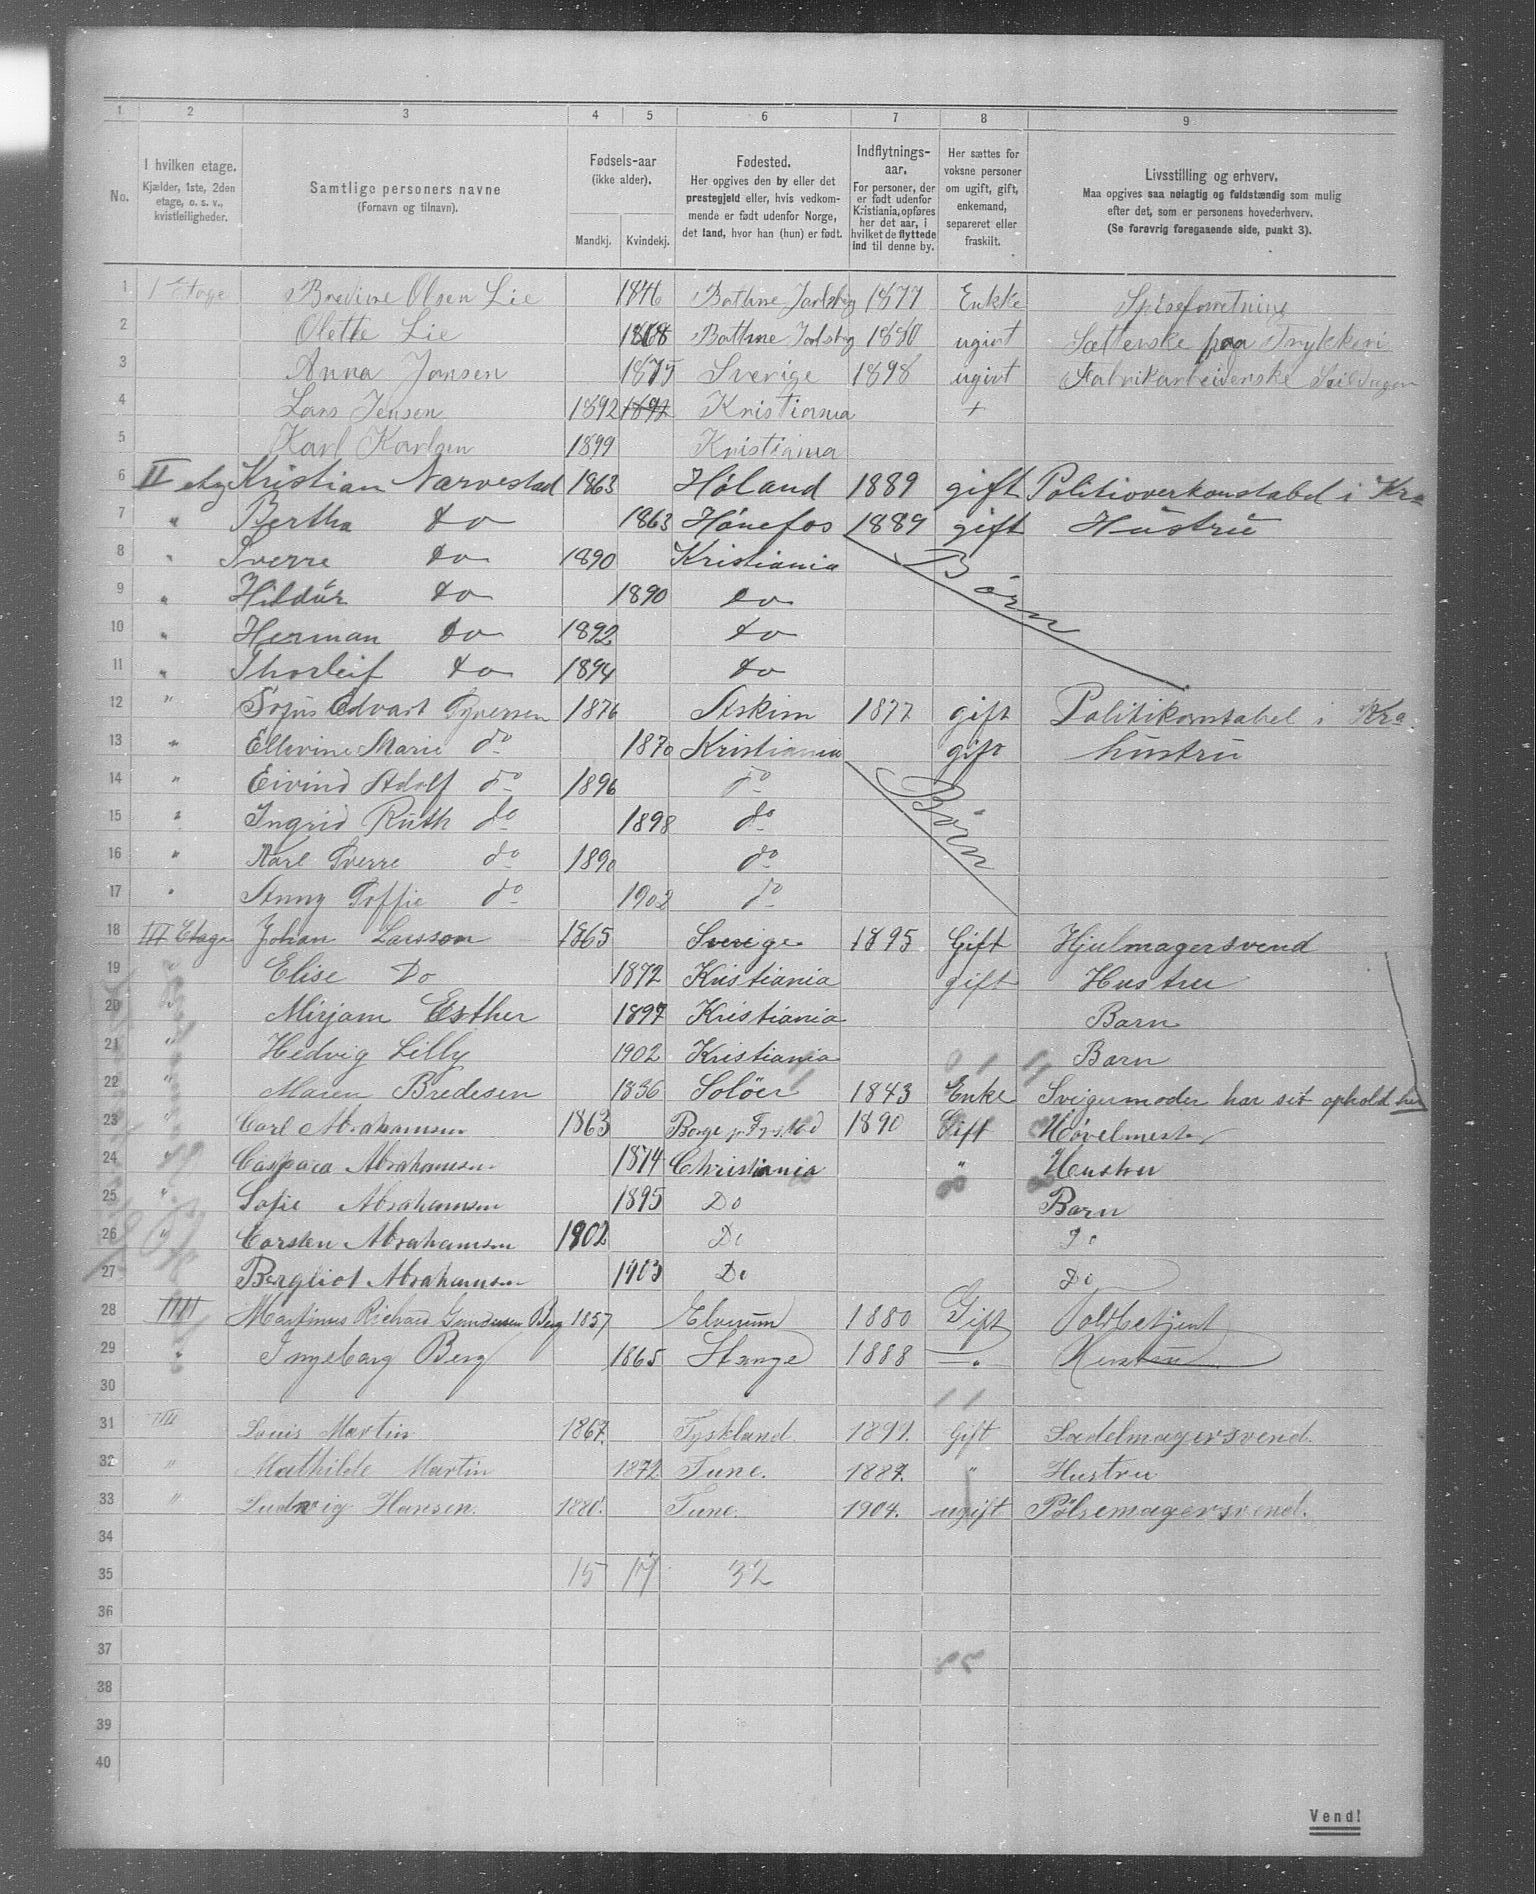 1 2 3 4 5 6 7 8 9
No.
I hvilken etage.
Kjælder, 1ste, 2den
etage, o. s. v.,
kvistleiligheder.
Samtlige personers navne
(Fornavn og tilnavn).
Fødsels-aar
(ikke alder).
Mandkj. Kvindekj.
Fødested.
Her opgives den by eller det
prestegjeld eller, hvis vedkom-
mende er født udenfor Norge,
det land, hvor han (hun) er født.
Indflytnings-
aar.
For personer, der
er født udenfor
Kristiania, opføres
her det aar, i
hvilket de flyttede
ind til denne by.
Her sættes for
voksne personer
om ugift, gift,
enkemand,
separeret eller
fraskilt.
Livsstilling og erhverv.
Maa opgives saa nøiagtig og fuldstændig som mulig
efter det, som er personens hovederhverv.
(Se forøvrig foregaaende side, punkt 3).
1 1 Etage Bredine Olsen Lie 1846 Bothne Jarlsbg 1877 Enkke Spiseforretning
2 Olette Lie 1868 Bothne Jarlsbg 1880 ugivt Sætterske paa Trykkeri
3 Anna Jansen 1875 Sverige 1898 ugivt Fabrikarbeiderske
4 Lars Jensen 1892 1892 Kristiania +
5 Karl Karlsen 1899 Kristiania
6 II etg Kristian Narvestad 1863 Høland 1889 gift Politioverkonstabel i Kra
7 " Bertha do 1863 Hønefos 1889 gift Hustru
8 " Sverre do 1890 Kristiania Børn
9 " Hildur do 1890 do
10 " Herman do 1892 do
11 " Thorleif do 1894 do
12 " Edvart 1876 Askim 1877 gift Politikonstabel i Kra.
13 " Ellevine Marie do 1870 Kristiania gift hustru
14 " Eivind Adolf do 1896 do Børn
15 " Ingrid Ruth do 1898 do
16 " Karl Sverre do 1890 do
17 " Anny Soffie do 1902 do
18 III Etage Johan Larsson 1865 Sverige 1895 Gift Hjulmagersvend
19 " Elise Do 1872 Kristiania gift Hustru
20 " Mirjam Esther 1897 Kristiania Barn
21 " Hedvig Lilly 1902 Kristiania Barn
22 " Maren Bredesen 1836 Solöer 1843 Enke Svigermoder har sit ophold her
23 " Carl Abrahamsen 1863 Borge pr Fr.stad 1890 Gift Høvelmester
24 " Caspara Abrahamsen 1874 Christiania " Hustru
25 " Sofie Abrahamsen 1895 Do Barn
26 " Carsten Abrahamsen 1902 Do Do
27 Bergliot Abrahamsen 1903 Do Do
28 IIII Martinus Richard Gundersen Berg 1857 Elverum 1880 Gift Toldbetjent
29 " Ingeborg Berg 1865 Stange 1888 —"— Hustru
30
31 IIII Louis Martin 1867. Tyskland. 1891. Gift Sadelmagersvend.
32 " Mathilde Martin 1872. Tune. 1887. " Hustru
33 " Ludvig Hansen. 1880. Tune. 1904. ugift Pølsemagersvend.
34
35 15 17 32
36
37
38
39
40
Vend!